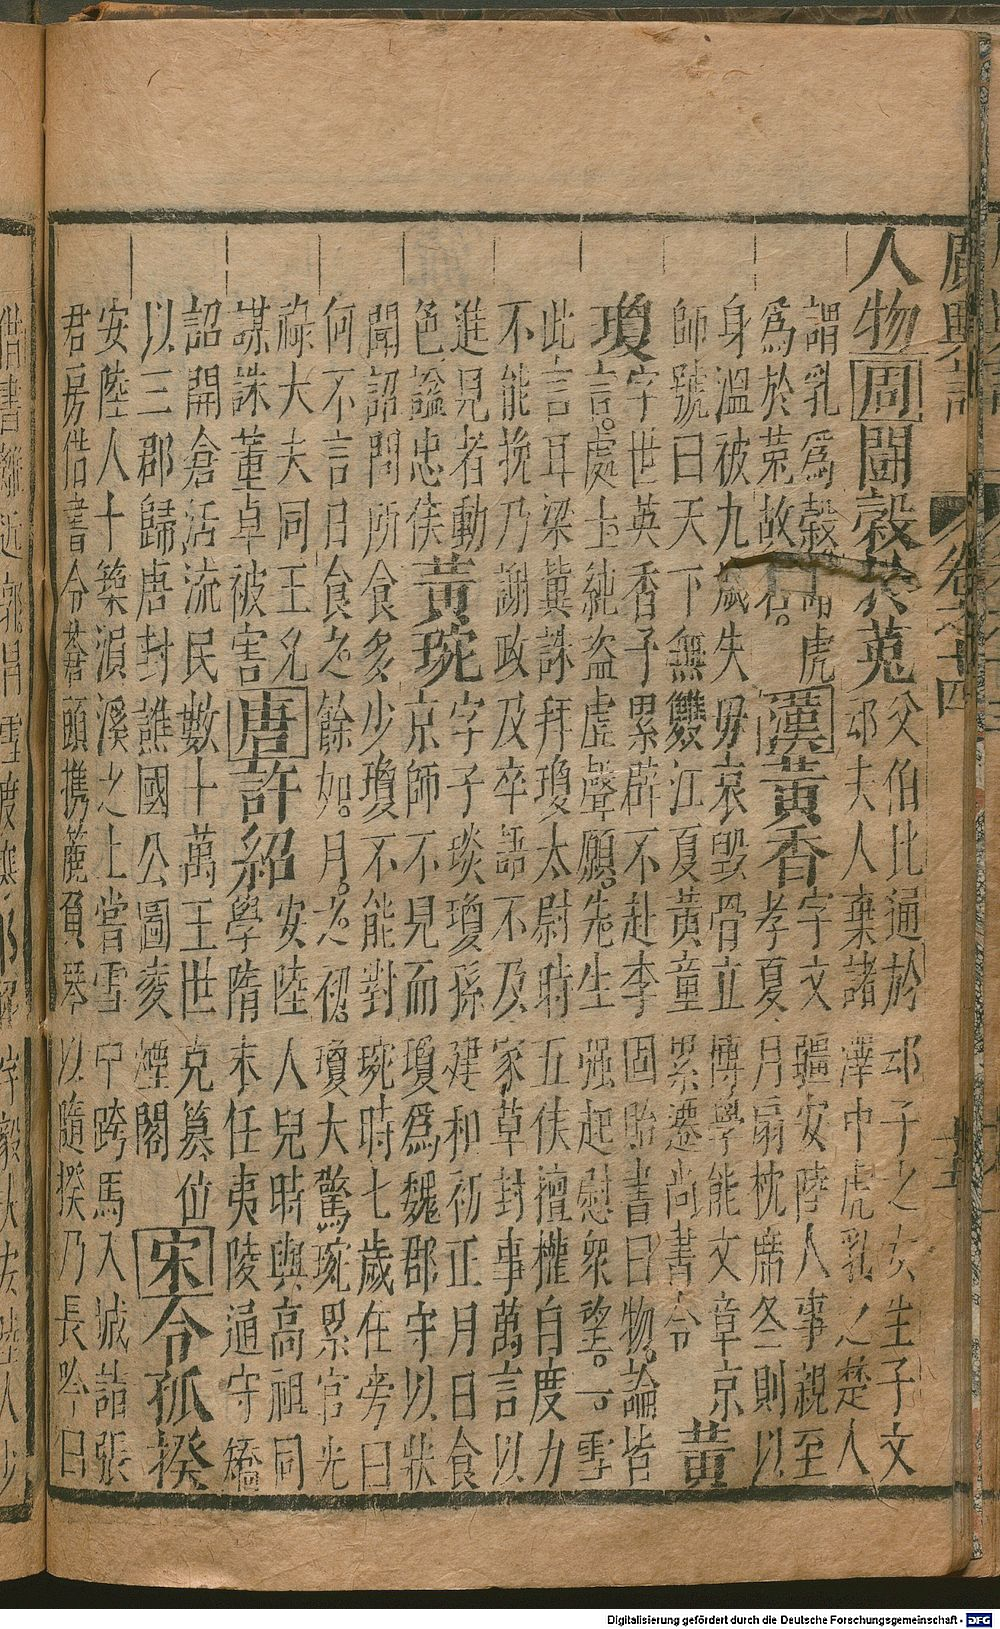 廣輿記 卷之十四 十五
人物 周 鬬穀於菟 父伯比通於䢵子之女生子文
䢵夫人棄諸澤中虎乳之楚人
謂乳爲穀謂虎
爲於菟故名。 漢 黃香 字文彊安陸人事親至
孝夏月扇枕席冬則以
身溫被九歲失母哀毀骨立博學能文章京
師號曰天下無雙江夏黃童累遷尚書令 黃
瓊 字世英香子累辟不赴李固貽書曰物論皆
言處士純盜虛聲願先生强起慰衆望一雪
此言耳梁冀誅拜瓊太尉時五侯擅權自度力
不能挽乃謝政及卒語不及家草封事萬言以
進見者動
色謚忠侯 黃琬 字子琰瓊孫建和初正月日食
京師不見而瓊爲魏郡守以狀
聞詔問所食多少瓊不能對琬時七歲在旁曰
何不言日食之餘如月之初瓊大驚琬累官光
祿大夫同王允
謀誅董卓被害 唐 許紹 安陸人兒時與高祖同
學隋末任夷陵通守矯
詔開倉活流民數十萬王世充簒位
以三郡歸唐封譙國公圖凌煙閣 宋 令狐揆
安陸人卜築溳溪之上嘗雪中跨馬入城詣張
君房借書令蒼頭携簏負琴以隨揆乃長吟曰
Digitalisierung gefördert durch die Deutsche Forschungsgemeinschaft - DFG